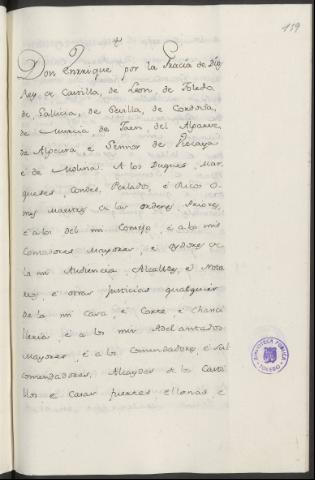 159
Don Enrrique por la Gracia de Dios
Rey de Castilla, de Leon, de Toledo
de Gallicia, de Sevilla, de Cordova,
de Murcia de Jaen, del Algarve,
de Algecira, e Sennor de Vizcaya
e de Molina. A los Duques, Mar
queses, Condes, Perlados, e Ricos O
mes Maestres de las ordenes Priores,
e a los del mi Consejo, e a los mis
Contadores Mayores, e oydores de
la mi Audiencia, Alcalles, e Nota
rios, e otras justicias qualquier
de la mi Casa e Corte e Chanci
lleria, e a los mis Adelantados
Mayores, e a los Comendadores, e Sub
comendadores, Alcaydes de los Casti
llos e Casas fuertes e llanas, e
BIBLIOTECA PUBLICA
TOLEDO